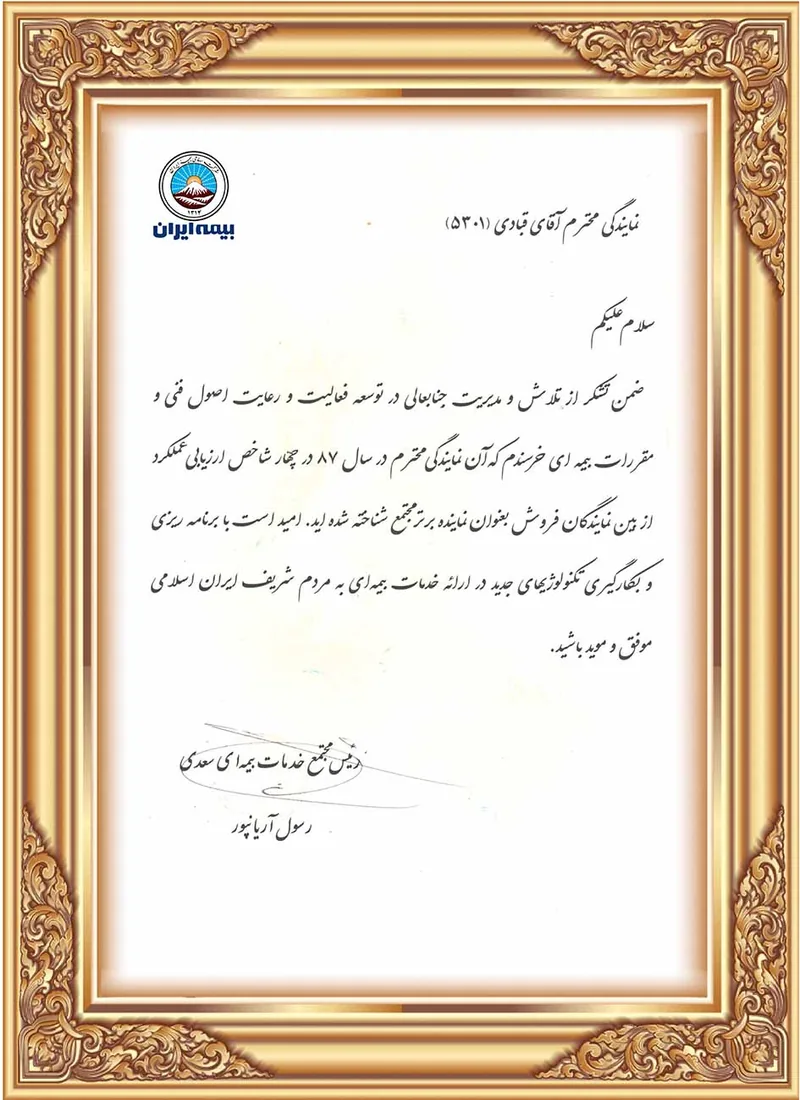 ۱۳۱۴
بیمه ایران
نمایندگی محترم آقای قبادی (۵۳۰۱)
سلام علیکم
ضمن تشکر از تلاش و مدیریت جنابعالی در توسعه فعالیت و رعایت اصول فنی و
مقررات بیمه ای خرسندم که آن نمایندگی محترم در سال ۸۷ در چهار شاخص ارزیابی عملکرد
از بین نمایندگان فروش بعنوان نماینده برتر مجتمع شناخته شده اید. امید است با برنامه ریزی
و بکارگیری تکنولوژیهای جدید در ارائه خدمات بیمه‌ای به مردم شریف ایران اسلامی
موفق و موید باشید.
رئیس مجتمع خدمات بیمه‌ای سعدی
رسول آریانپور